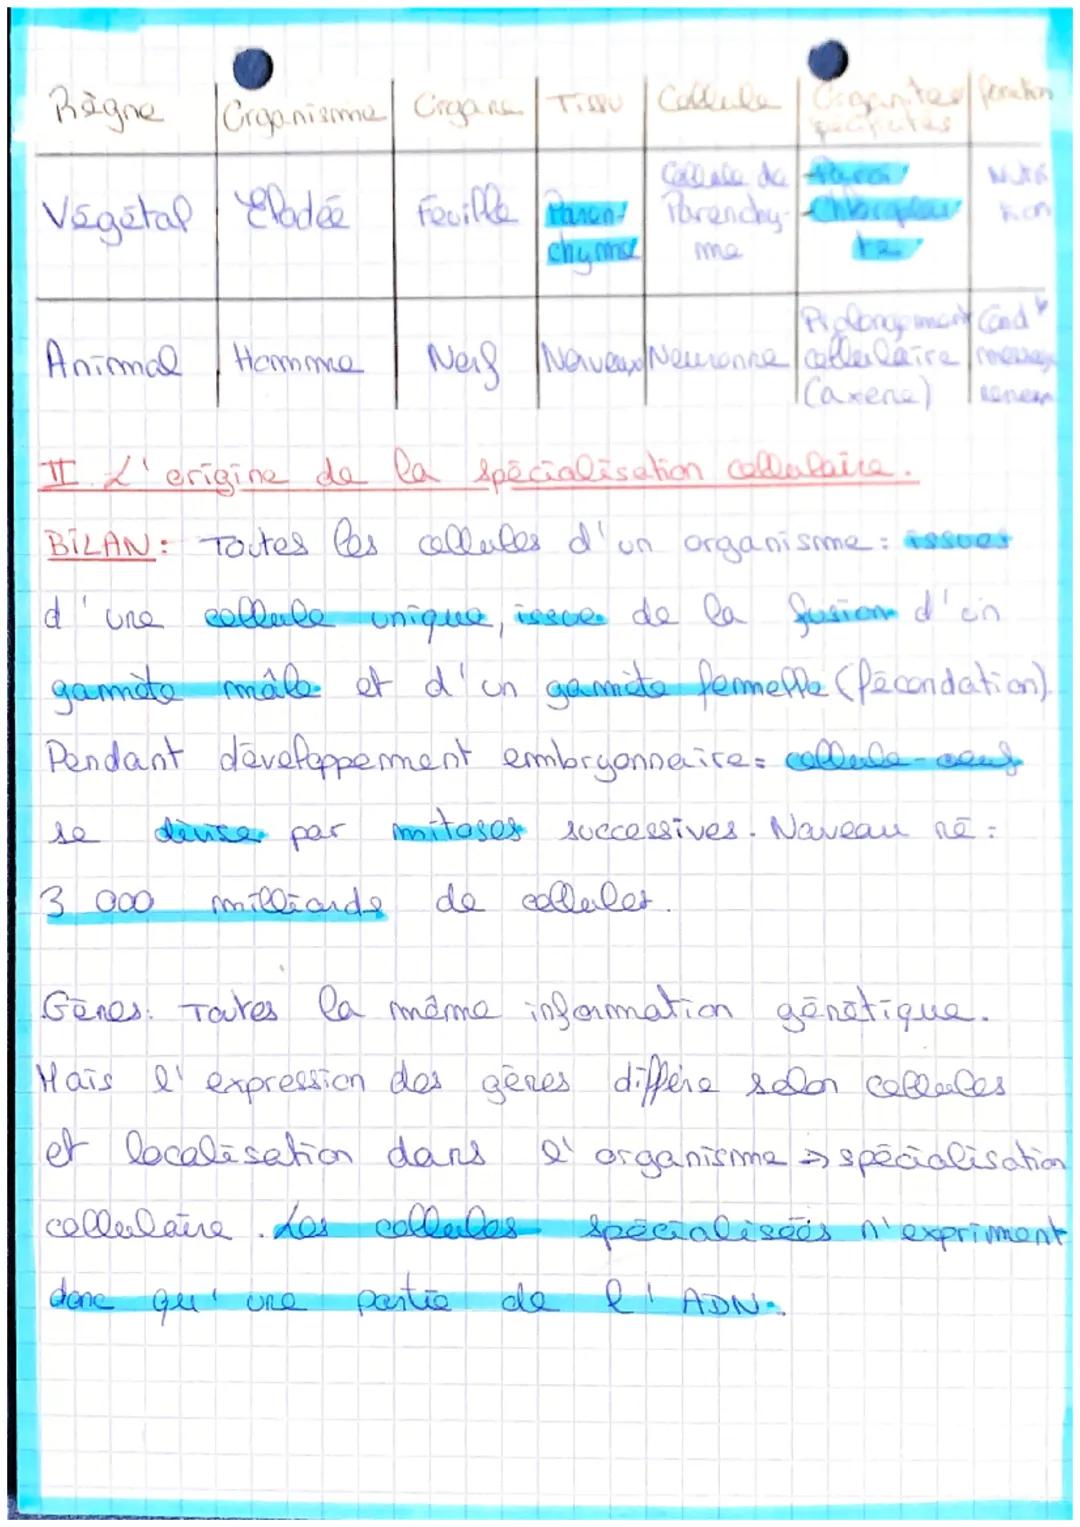 Règne | Organisme | Organe | Tissu | Cellule | Organites spécifiques | fonction
Végétal | Elodée | Feuille | Paren-chyme | Cellule de Parenchy-me | -Paroi -Chloroplaste | Nutrition
Animal | Homme | Nerf | Nerveux | Neuronne | Prolongement cellulaire (axone) | Cond° message nerveux
II. L'origine de la spécialisation cellulaire.
BILAN: Toutes les cellules d'un organisme: issues
d'une cellule unique, issue de la fusion d'un
gamète mâle et d'un gamète femelle (fécondation).
Pendant développement embryonnaire: cellule-oeuf
se divise par mitoses successives. Nouveau né:
3 000 milliards de cellules.
Gènes: Toutes la même information génétique.
Mais l'expression des gènes diffère selon cellules
et localisation dans l'organisme => spécialisation
cellulaire. Les cellules spécialisées n'expriment
donc qu'une partie de l'ADN.